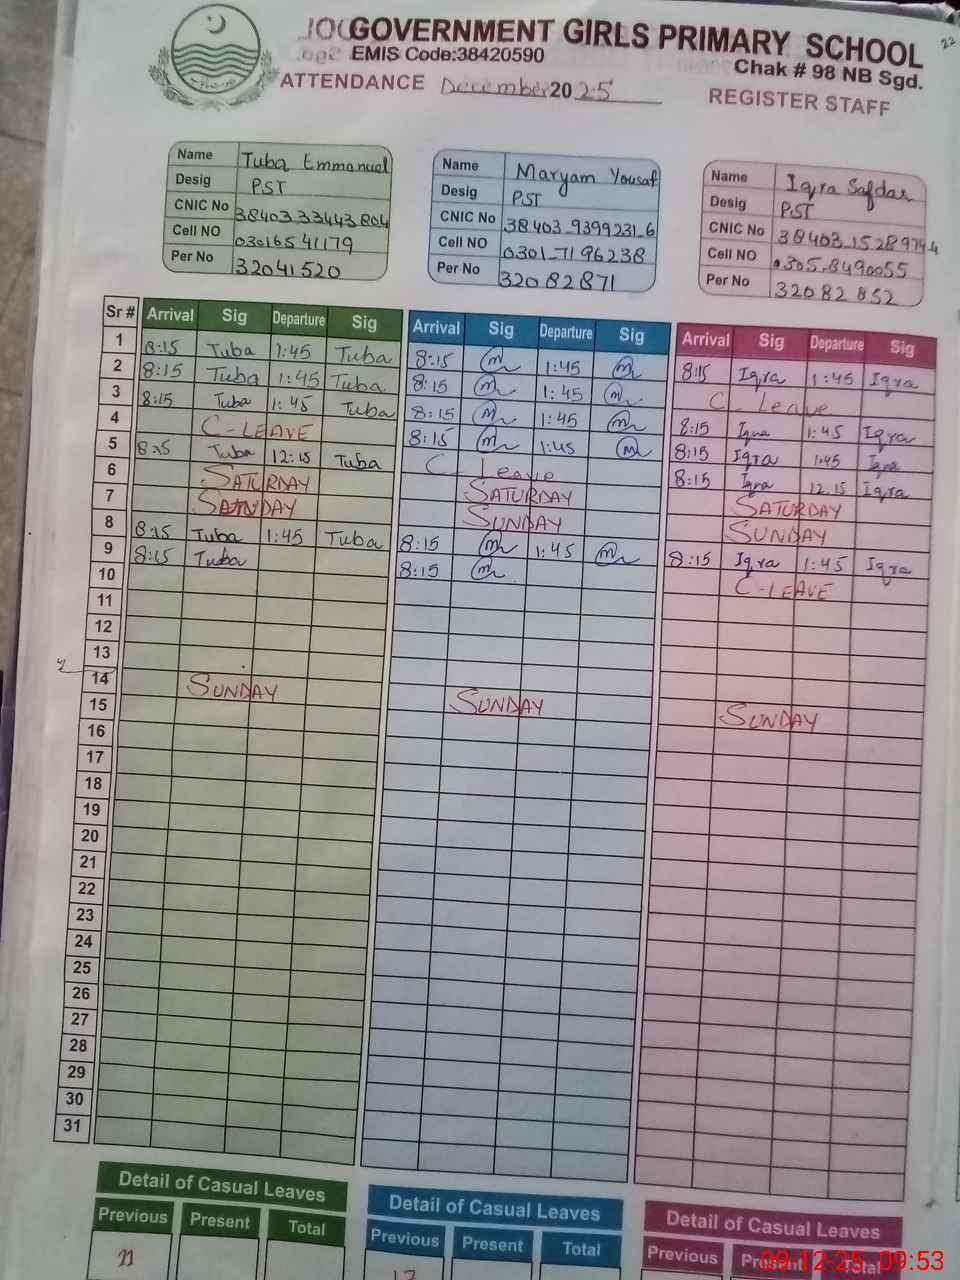 GOVERNMENT GIRLS PRIMARY SCHOOL
EMIS Code:38420590
Chak # 98 NB Sgd.
22
ATTENDANCE December 2025
REGISTER STAFF
Name Tuba Emmanuel
Desig PST
CNIC No 3840333443804
Cell NO 03016541179
Per No 32041520
Name Maryam Yousaf
Desig PST
CNIC No 38403-9399231-6
Cell NO 0301-7196238
Per No 32082871
Name Iqra Safdar
Desig PST
CNIC No
Cell NO 0305-8490055
Per No 32082852
Sr # Arrival Sig Departure Sig Arrival Sig Departure Sig Arrival Sig Departure Sig
1 8:15 Tuba 1:45 Tuba 8:15 1:45 8:15 Iqra 1:45 Iqra
2 8:15 Tuba 1:45 Tuba 8:15 1:45 C-Leave
3 8:15 Tuba 1:45 Tuba 8:15 1:45 8:15 Iqra 1:45 Iqra
4 C-LEAVE 8:15 1:45 8:15 Iqra 1:45 Iqra
5 8:15 Tuba 12:15 Tuba C-Leave 8:15 Iqra 12.15 Iqra
6 SATURDAY SATURDAY SATURDAY
7 SUNDAY SUNDAY SUNDAY
8 8:15 Tuba 1:45 Tuba 8:15 1:45 8:15 Iqra 1:45 Iqra
9 8:15 Tuba 8:15 C-LEAVE
10
11
12
13
14 SUNDAY SUNDAY SUNDAY
15
16
17
18
19
20
21
22
23
24
25
26
27
28
29
30
31
Detail of Casual Leaves Detail of Casual Leaves Detail of Casual Leaves
Previous Present Total Previous Present Total Previous Present Total
09-12-25 09:53